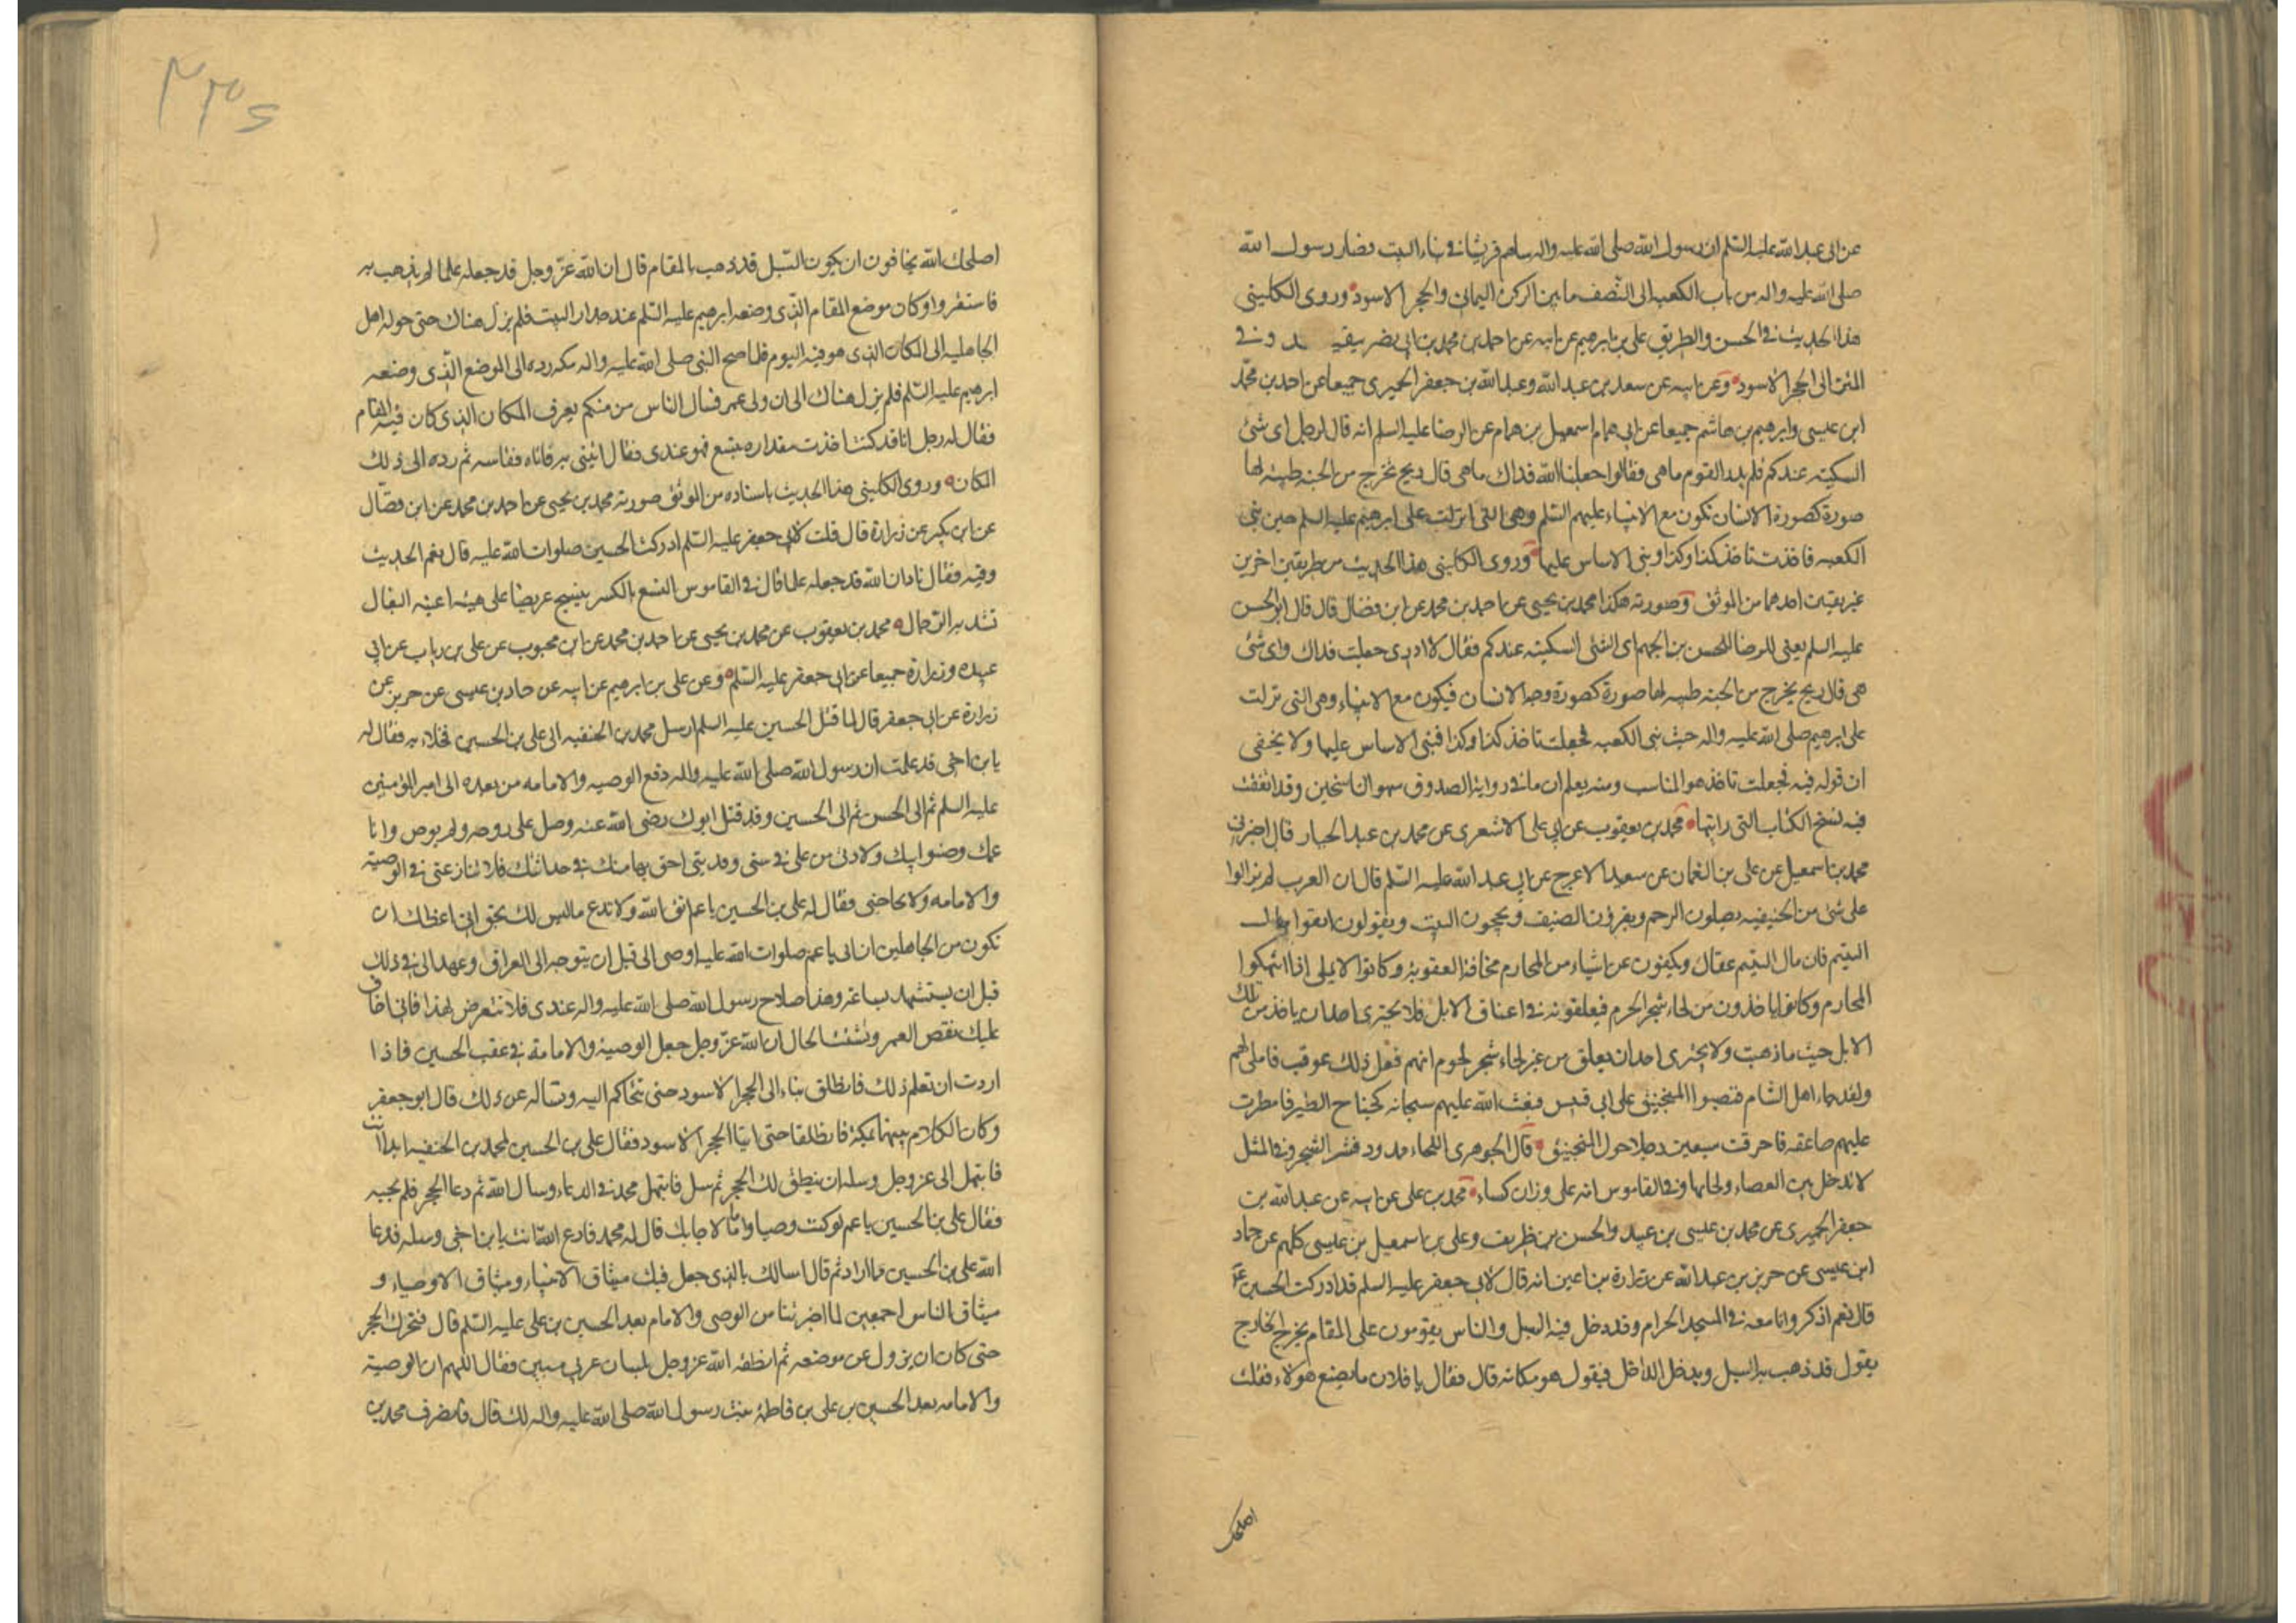 عن ابى عبد الله عليه السلم ان رسول الله صلى الله عليه واله ساهم قريشا فى بناء البيت فصار لرسول الله
صلى الله عليه واله من باب الكعبه الى النصف ما بين الركن اليمانى والحجر الاسود وروى الكلينى
هذا الحديث فى الحسن والطريق على بن ابرهيم عن ابيه عن احمد بن محمد بن ابى نصر ببقيه د وفى
المتن الى الحجر الاسود وعن ابيه عن سعد بن عبد الله وعبد الله بن جعفر الحميرى جميعا عن احمد بن محمد
ابن عيسى وابرهيم بن هاشم جميعا عن ابى همام اسمعيل بن همام عن الرضا عليه السلم انه قال لرجل اى شئ
السكينه عندكم فلم يدر القوم ما هى فقالوا جعلنا الله فداك ما هى قال ريح تخرج من الجنه طيبه لها
صورة كصورة الانسان تكون مع الانبياء عليهم السلم وهى التى انزلت على ابرهيم عليه السلم حين بنى
الكعبه فاخذت تاخذ كذا وكذا وبنى الاساس عليها وروى الكلينى هذا الحديث من طريقين اخرين
غير بقيتين احدهما من الموثق وصورته هكذا محمد بن يحيى عن احمد بن محمد عن ابن فضال قال قال ابو الحسن
عليه السلم يعنى الرضا للحسن بن الجهم اى الشئ السكينه عندكم فقال لا ادرى جعلت فداك واى شئ
هى قال ريح يخرج من الجنه طيبه لها صورة كصورة وجه الانسان فيكون مع الانبياء وهى التى نزلت
على ابرهيم صلى الله عليه واله حيث بنى الكعبه فجعلت تاخذ كذا وكذا فبنى الاساس عليها ولا يخفى
ان قوله فيه فجعلت تاخذ هو المناسب ومنه يعلم ان ما فى رواية الصدوق سهو الناسخين وقد اتفقت
فيه نسخ الكتاب التى رايتها محمد بن يعقوب عن ابى على الاشعرى عن محمد بن عبد الجبار قال اخبرنى
محمد بن اسمعيل عن على بن النعمان عن سعيد الاعرج عن ابى عبد الله عليه السلم قال ان العرب لم يزالوا
على شئ من الحنيفيه يصلون الرحم ويقرؤن الضيف ويحجون البيت ويقولون اتقوا مال
اليتيم فان مال اليتيم عقال ويكفون عن اشياء من المحارم مخافة العقوبة وكانوا لا يملى لهم اذا انتهكوا
المحارم وكانوا ياخذون من لحاء شجر الحرم فيعلقونه فى اعناق الابل فلا يجترى احد ان ياخذ من تلك
الابل حيث ما ذهبت ولا يجترى احد ان يعلق من غير لحاء شجر الحرم ايهم فعل ذلك عوقب فاملى لهم
ولقد جاء اهل الشام فنصبوا المنجنيق على ابى قبيس فبعث الله عليهم سحابه كجناح الطير فامطرت
عليهم صاعقه فاحرقت سبعين رجلا حول المنجنيق قال الجوهرى اللحاء ممدود قشر الشجر وفى المثل
لا تدخل بين العصاء ولحائها وفى القاموس انه على وزان كساء محمد بن على عن ابيه عن عبد الله بن
جعفر الحميرى عن محمد بن عيسى بن عبيد والحسن بن ظريف وعلى بن اسمعيل بن عيسى كلهم عن حماد
ابن عيسى عن حريز بن عبد الله عن زرارة بن اعين انه قال لابى جعفر عليه السلم قد ادركت الحسين ع
قال نعم اذكر وانا معه فى المسجد الحرام وقد دخل فيه السيل والناس يقومون على المقام يخرج الخارج
يقول قد ذهب به السيل ويدخل الداخل فيقول هو مكانه قال فقال يا فلان ما يصنع هولاء فقلت
اصلحك
٢٣٤
اصلحك الله يخافون ان يكون السيل قد ذهب بالمقام قال ان الله عز وجل قد جعله علما لم يذهب به
فاستقروا وكان موضع المقام الذى وضعه ابرهيم عليه السلم عند جدار البيت فلم يزل هناك حتى حوله اهل
الجاهليه الى المكان الذى هو فيه اليوم فلما فتح النبى صلى الله عليه واله مكه رده الى الموضع الذى وضعه
ابرهيم عليه السلم فلم يزل هناك الى ان ولى عمر فسال الناس من منكم يعرف المكان الذى كان فيه المقام
فقال له رجل انا قد كنت اخذت مقداره بنسع فهو عندى فقال ائتنى به فاتاه فقاسه ثم رده الى ذلك
المكان وروى الكلينى هذا الحديث باسناده من الموثق صورته محمد بن يحيى عن احمد بن محمد عن ابن فضال
عن ابن بكير عن زرارة قال قلت لابى جعفر عليه السلم ادركت الحسين صلوات الله عليه قال نعم الحديث
وفيه فقال ناد ان الله قد جعله علما قال فى القاموس النسع بالكسر ينسج عريضا على هيئه اعنه البغال
تشد به الرحال محمد بن يعقوب عن محمد بن يحيى عن احمد بن محمد عن ابن محبوب عن على بن رياب عن ابى
عبيده وزرارة جميعا عن ابى جعفر عليه السلم وعن على بن ابرهيم عن ابيه عن حماد بن عيسى عن حريز عن
زرارة عن ابى جعفر قال لما قتل الحسين عليه السلم ارسل محمد بن الحنفيه الى على بن الحسين فخلاء به فقال له
يا بن اخى قد علمت ان رسول الله صلى الله عليه واله دفع الوصيه والامامه من بعده الى امير المؤمنين
عليه السلم ثم الى الحسن ثم الى الحسين وقد قتل ابوك رضى الله عنه وصلى على روحه ولم يوص وانا
عمك وصنو ابيك ولادتى من على فى سنى وقديتى احق بها منك فى حداثتك فلا تنازعنى فى الوصية
والامامه ولا تحاجنى فقال له على بن الحسين يا عم اتق الله ولا تدع ما ليس لك بحق انى اعظك ان
تكون من الجاهلين ان ابى يا عم صلوات الله عليه اوصى الى قبل ان يتوجه الى العراق وعهد الى فى ذلك
قبل ان يستشهد بساعة وهذا سلاح رسول الله صلى الله عليه واله عندى فلا تتعرض لهذا فانى اخاف
عليك نقص العمر وتشتت الحال ان الله عز وجل جعل الوصية والامامة فى عقب الحسين فاذا
اردت ان تعلم ذلك فانطلق بناء الى الحجر الاسود حتى نتحاكم اليه ونساله عن ذلك قال ابو جعفر
وكان الكلام بينهما بمكة فانطلقا حتى اتيا الحجر الاسود فقال على بن الحسين لمحمد بن الحنفيه ابدا انت
فابتهل الى عز وجل وسله ان ينطق لك الحجر ثم سل فابتهل محمد فى الدعاء وسال الله ثم دعا الحجر فلم يجبه
فقال على بن الحسين يا عم لو كنت وصيا واماما لاجابك قال له محمد فادع الله انت يا بن اخى وسله فدعا
الله على بن الحسين بما اراد ثم قال اسالك بالذى جعل فيك ميثاق الانبياء وميثاق الاوصياء و
ميثاق الناس اجمعين لما اخبرتنا من الوصى والامام بعد الحسين بن على عليه السلم قال فتحرك الحجر
حتى كان ان يزول عن موضعه ثم انطقه الله عز وجل بلسان عربى مبين فقال اللهم ان الوصية
والامامه بعد الحسين بن على بن فاطمة بنت رسول الله صلى الله عليه واله لك قال فانصرف محمد بن